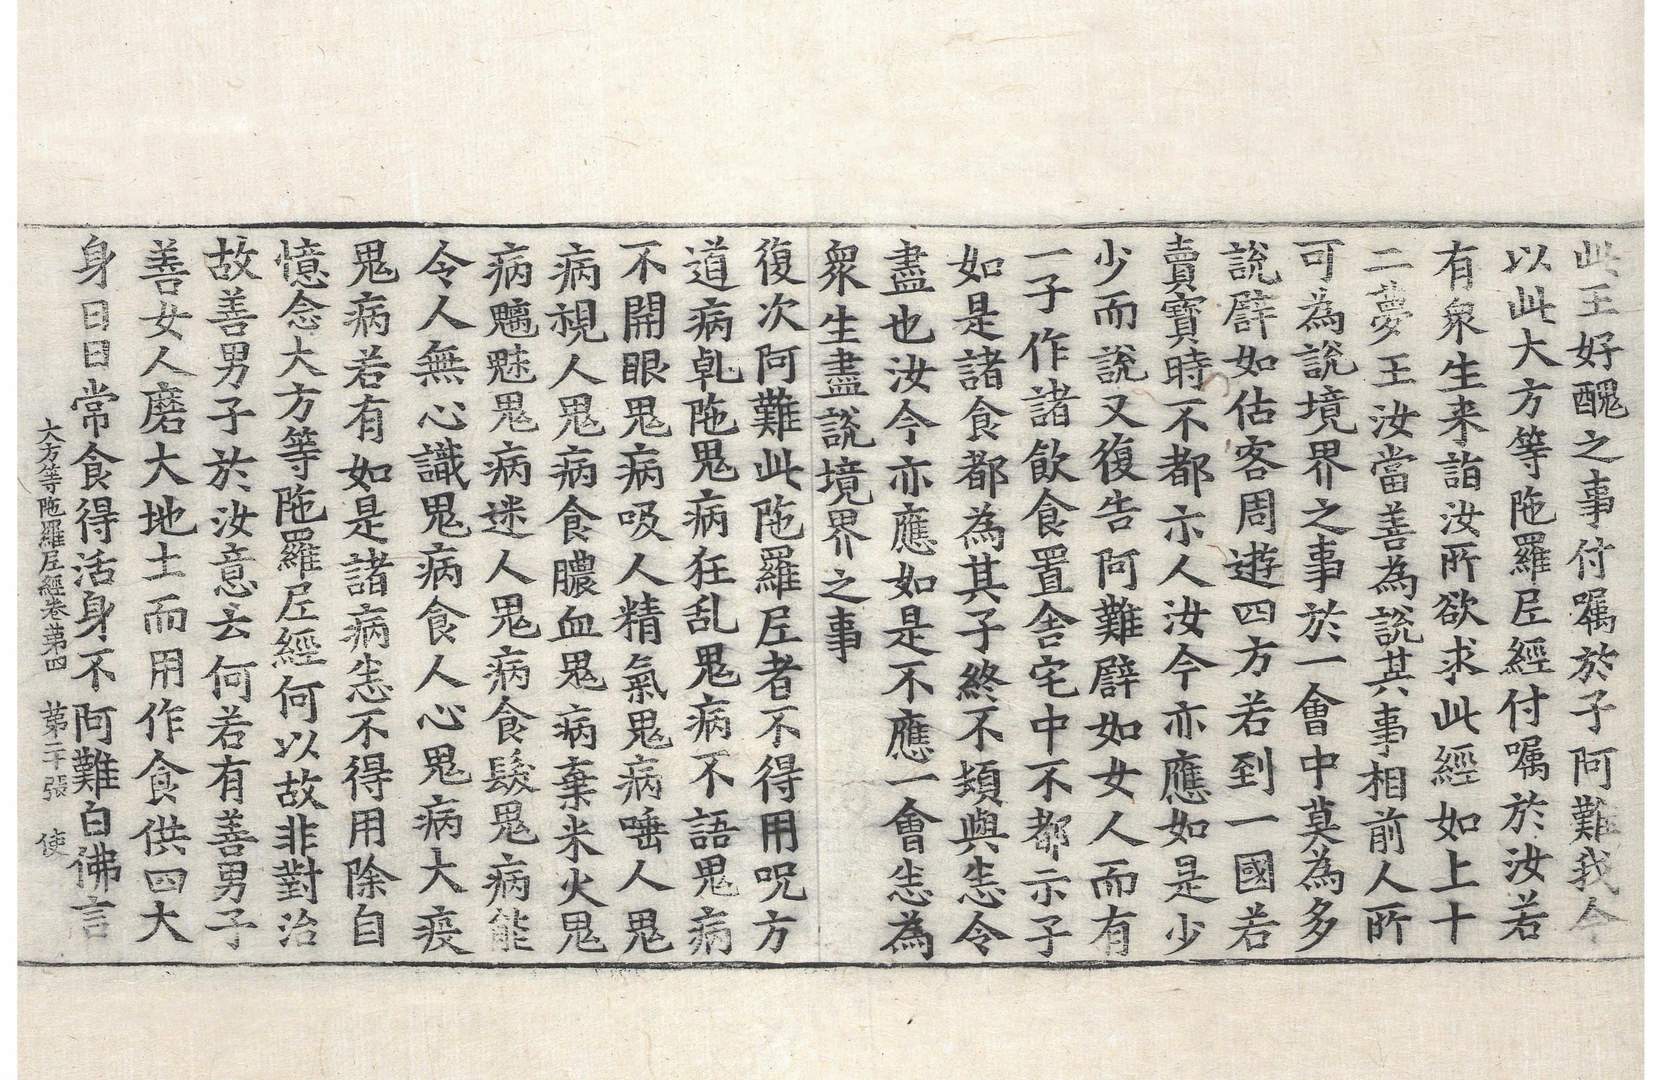 此王好醜之事付嘱於子阿難我今
以此大方等陁羅尼經付嘱於汝若
有衆生来詣汝所欲求此經如上十
二夢王汝當善為說其事相前人所
可為說境界之事於一會中莫為多
說譬如估客周遊四方若到一國若
賣寶時不都示人汝今亦應如是少
少而說又復告阿難譬如女人而有
一子作諸飲食置舎宅中不都示子
如是諸食都為其子終不頻與恙令
盡也汝今亦應如是不應一會恙為
衆生盡說境界之事
復次阿難此陁羅尼者不得用呪方
道病乹陁鬼病狂乱鬼病不語鬼病
不開眼鬼病吸人精氣鬼病唾人鬼
病視人鬼病食膿血鬼病棄米火鬼
病魑魅鬼病迷人鬼病食髮鬼病能
令人無心識鬼病食人心鬼病大疫
鬼病若有如是諸病恙不得用除自
憶念大方等陁羅尼經何以故非對治
故善男子於汝意云何若有善男子
善女人磨大地土而用作食供四大
身日日常食得活身不阿難白佛言
大方等陁羅尼經卷苐四 苐二十張 使